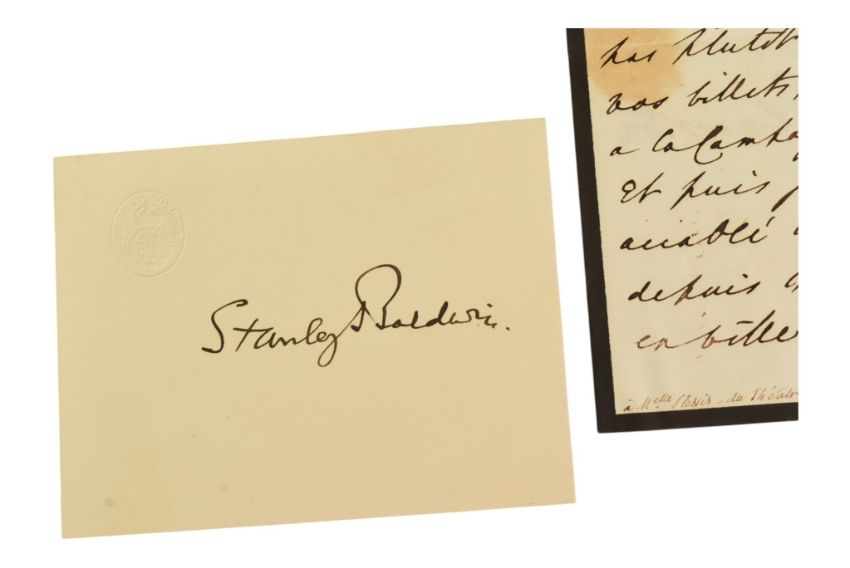 Stanley Baldwin.
pas plutôt
vos billets,
a la Campa
Et puis
accablé
depuis
en ville
à Melle Plessis - du Théatr